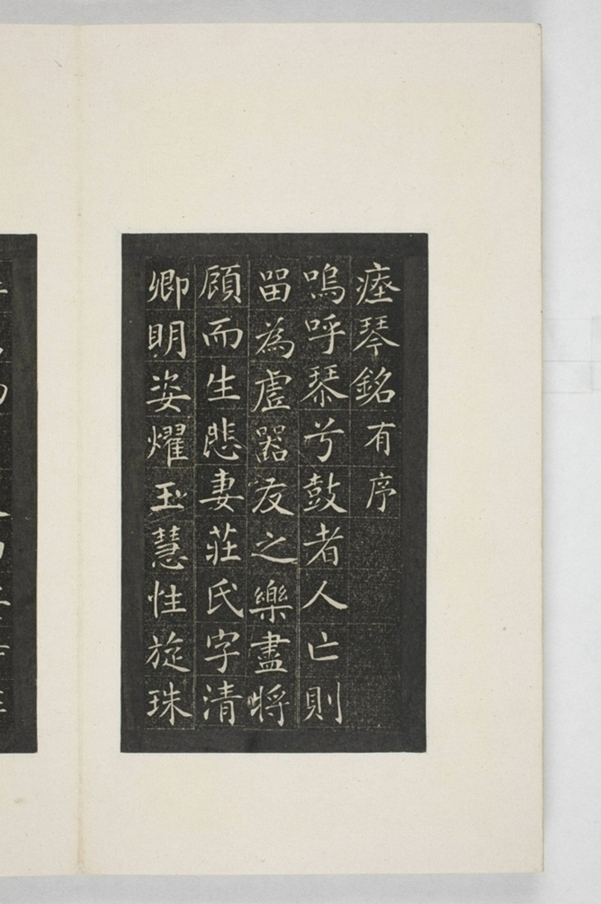 瘞琴銘有序
嗚呼琴兮鼓者人亡則
留為虛器友之樂盡將
顧而生悲妻莊氏字清
卿明姿燿玉慧性旋珠